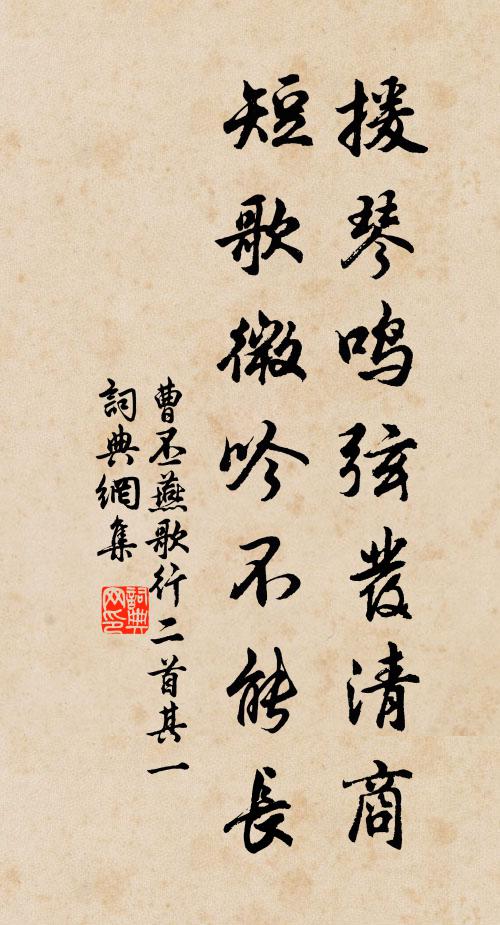 援琴鳴弦發清商
短歌微吟不能長
曹丕燕歌行二首其一
詞典網集
詞典网印